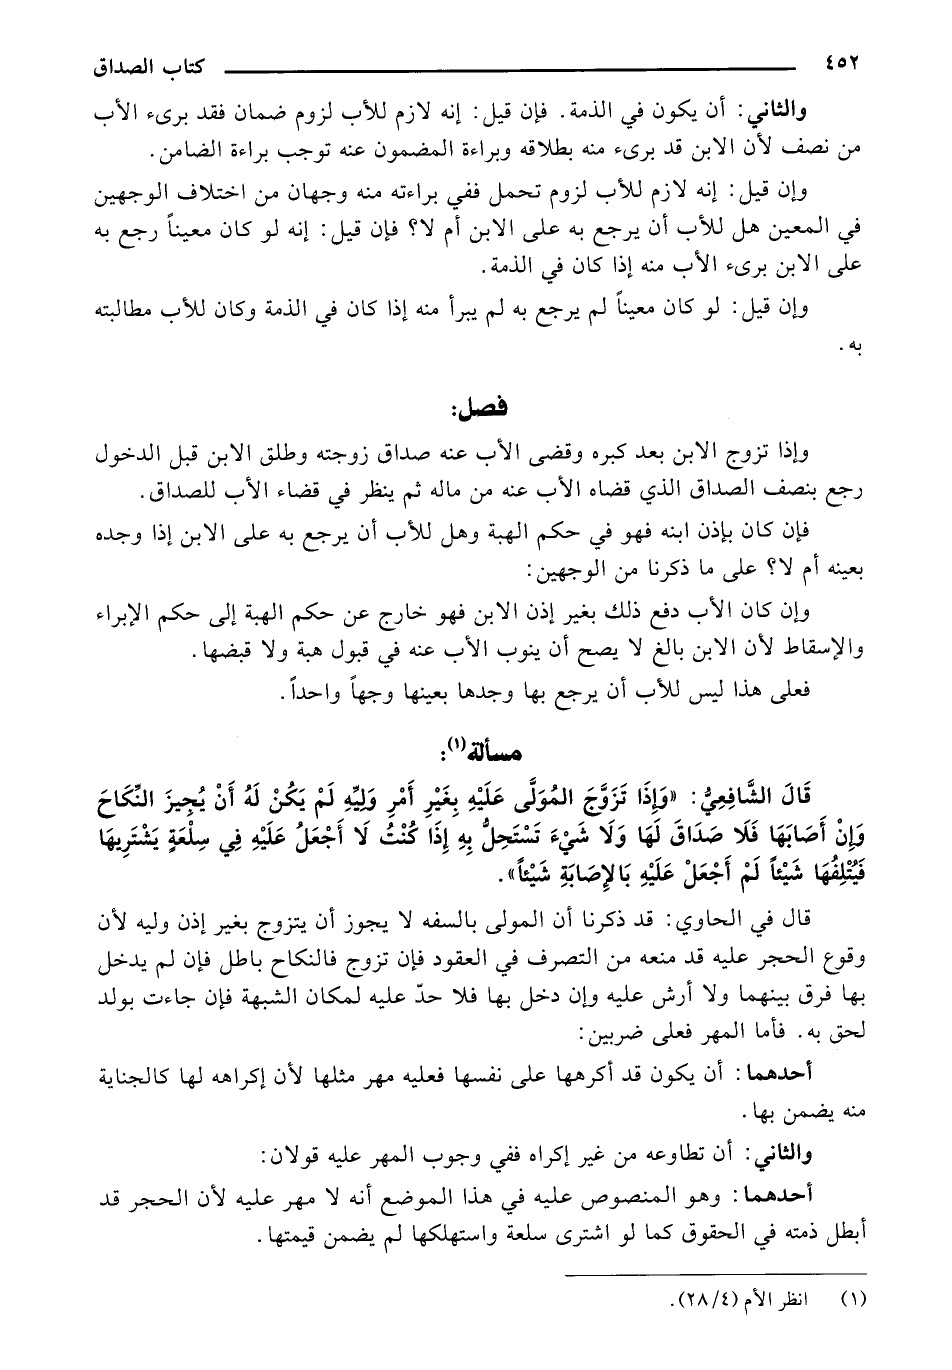 ٤٥٢ كتاب الصداق
والثاني: أن يكون في الذمة. فإن قيل: إنه لازم للأب لزوم ضمان فقد برىء الأب
من نصف لأن الابن قد برىء منه بطلاقه وبراءة المضمون عنه توجب براءة الضامن.
وإن قيل: إنه لازم للأب لزوم تحمل ففي براءته منه وجهان من اختلاف الوجهين
في المعين هل للأب أن يرجع به على الابن أم لا؟ فإن قيل: إنه لو كان معيناً رجع به
على الابن برىء الأب منه إذا كان في الذمة.
وإن قيل: لو كان معيناً لم يرجع به لم يبرأ منه إذا كان في الذمة وكان للأب مطالبته
به.
فصل:
وإذا تزوج الابن بعد كبره وقضى الأب عنه صداق زوجته وطلق الابن قبل الدخول
رجع بنصف الصداق الذي قضاه الأب عنه من ماله ثم ينظر في قضاء الأب للصداق.
فإن كان بإذن ابنه فهو في حكم الهبة وهل للأب أن يرجع به على الابن إذا وجده
بعينه أم لا؟ على ما ذكرنا من الوجهين:
وإن كان الأب دفع ذلك بغير إذن الابن فهو خارج عن حكم الهبة إلى حكم الإبراء
والإسقاط لأن الابن بالغ لا يصح أن ينوب الأب عنه في قبول هبة ولا قبضها.
فعلى هذا ليس للأب أن يرجع بها وجدها بعينها وجهاً واحداً.
مسألة(١):
قَالَ الشَّافِعِيُّ: «وَإِذَا تَزَوَّجَ المُوَلَّى عَلَيْهِ بِغَيْرِ أَمْرِ وَلِيِّهِ لَمْ يَكُنْ لَهُ أَنْ يُجِيزَ النِّكَاحَ
وَإِنْ أَصَابَهَا فَلَا صَدَاقَ لَهَا وَلَا شَيْءَ تَسْتَحِلُّ بِهِ إِذَا كُنْتُ لَا أَجْعَلُ عَلَيْهِ فِي سِلْعَةٍ يَشْتَرِيهَا
فَيُتْلِفُهَا شَيْئاً لَمْ أَجْعَلْ عَلَيْهِ بَالإِصَابَةِ شَيْئاً».
قال في الحاوي: قد ذكرنا أن المولى بالسفه لا يجوز أن يتزوج بغير إذن وليه لأن
وقوع الحجر عليه قد منعه من التصرف في العقود فإن تزوج فالنكاح باطل فإن لم يدخل
بها فرق بينهما ولا أرش عليه وإن دخل بها فلا حدّ عليه لمكان الشبهة فإن جاءت بولد
لحق به. فأما المهر فعلى ضربين:
أحدهما: أن يكون قد أكرهها على نفسها فعليه مهر مثلها لأن إكراهه لها كالجناية
منه يضمن بها.
والثاني: أن تطاوعه من غير إكراه ففي وجوب المهر عليه قولان:
أحدهما: وهو المنصوص عليه في هذا الموضع أنه لا مهر عليه لأن الحجر قد
أبطل ذمته في الحقوق كما لو اشترى سلعة واستهلكها لم يضمن قيمتها.
(١) انظر الأم (٢٨/٤).